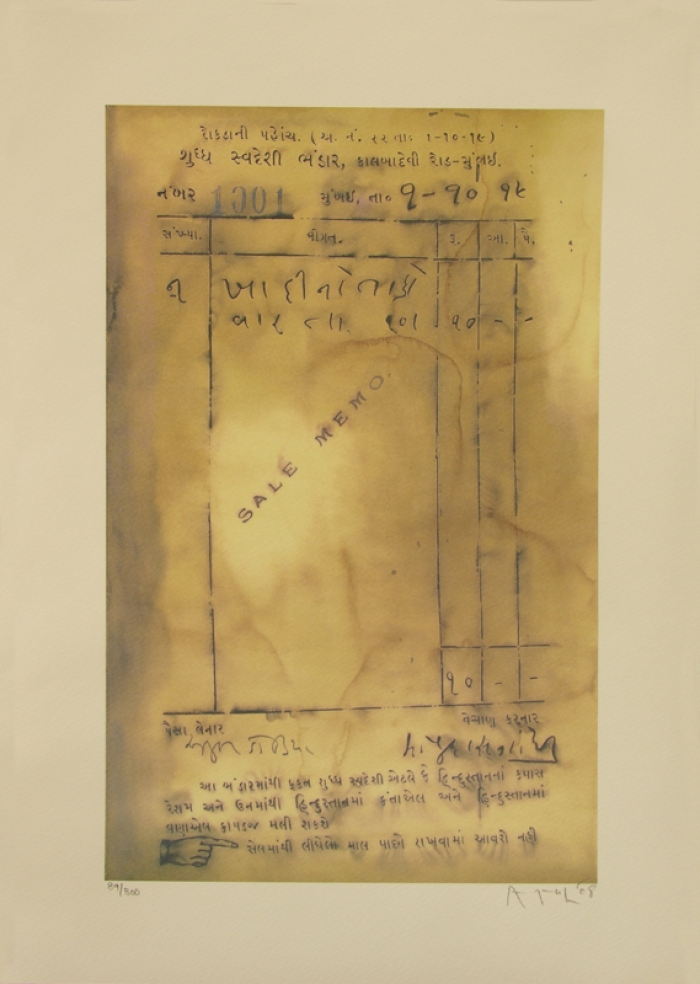 રોકડાની પહોંચ. (અ. નં. ૬૨ તા૦ ૧-૧૦-૧૯)
શુધ્ધ સ્વદેશી ભંડાર, કાલબાદેવી રોડ-મુંબઈ.
નંબર 1001 મુંબઈ, તા૦ ૧-૧૦ ૧૯
સંખ્યા. વીગત. રૂ. આ. પૈ.
૧ ખાદીનો તાકો
વાર તા. ૧૦ - -
SALE MEMO.
૧૦ - -
પૈસા લેનાર વેચાણ કરનાર
આ ભંડારમાંથી ફક્ત શુધ્ધ સ્વદેશી એટલે કે હિન્દુસ્તાનનાં કપાસ
રેશમ અને ઉનમાંથી હિન્દુસ્તાનમાં કંતાએલ અને હિન્દુસ્તાનમાં
વણાએલ કાપડજ મલી શકશે
સેલમાંથી લીધેલો માલ પાછો રાખવામાં આવશે નહીં
/300 '08